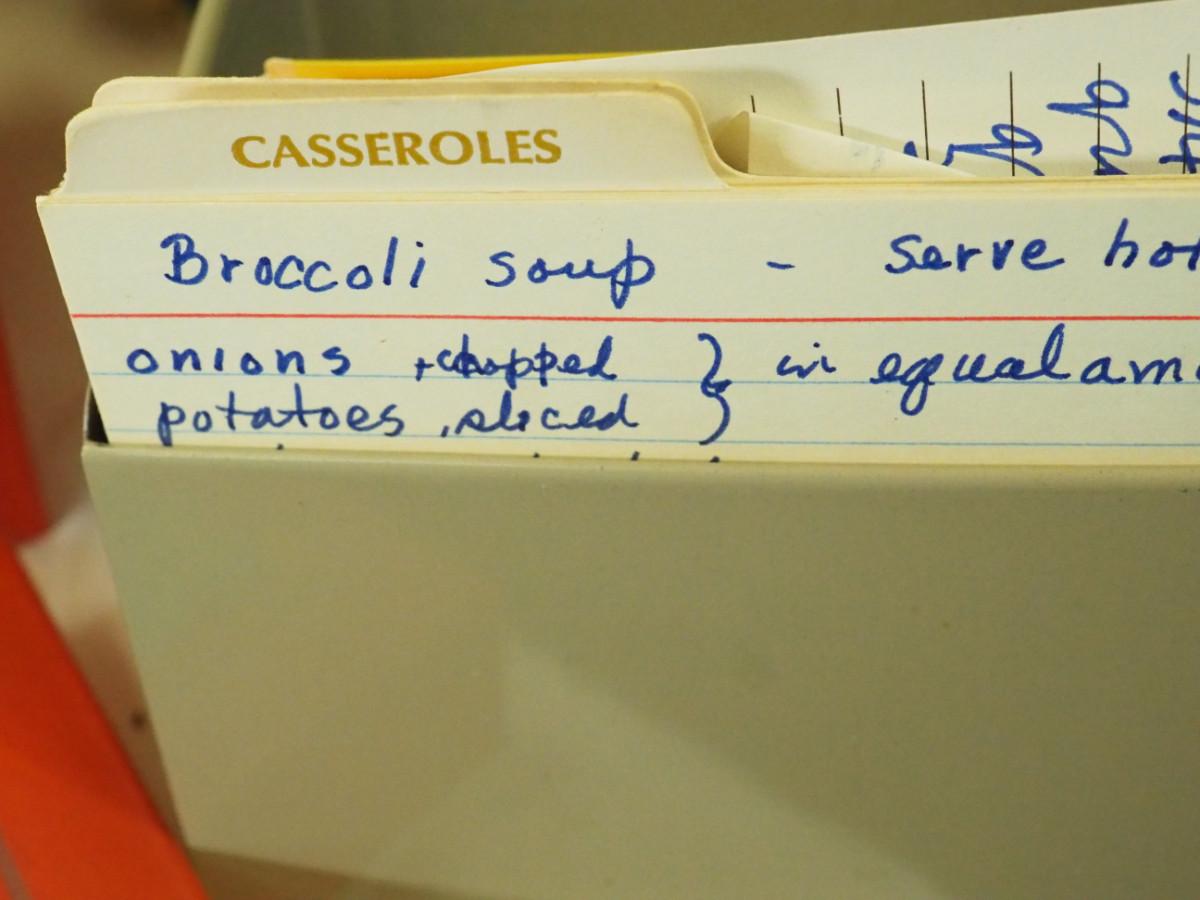 CASSEROLES
Broccoli soup - serve
onions, chopped } in equal
potatoes, sliced }